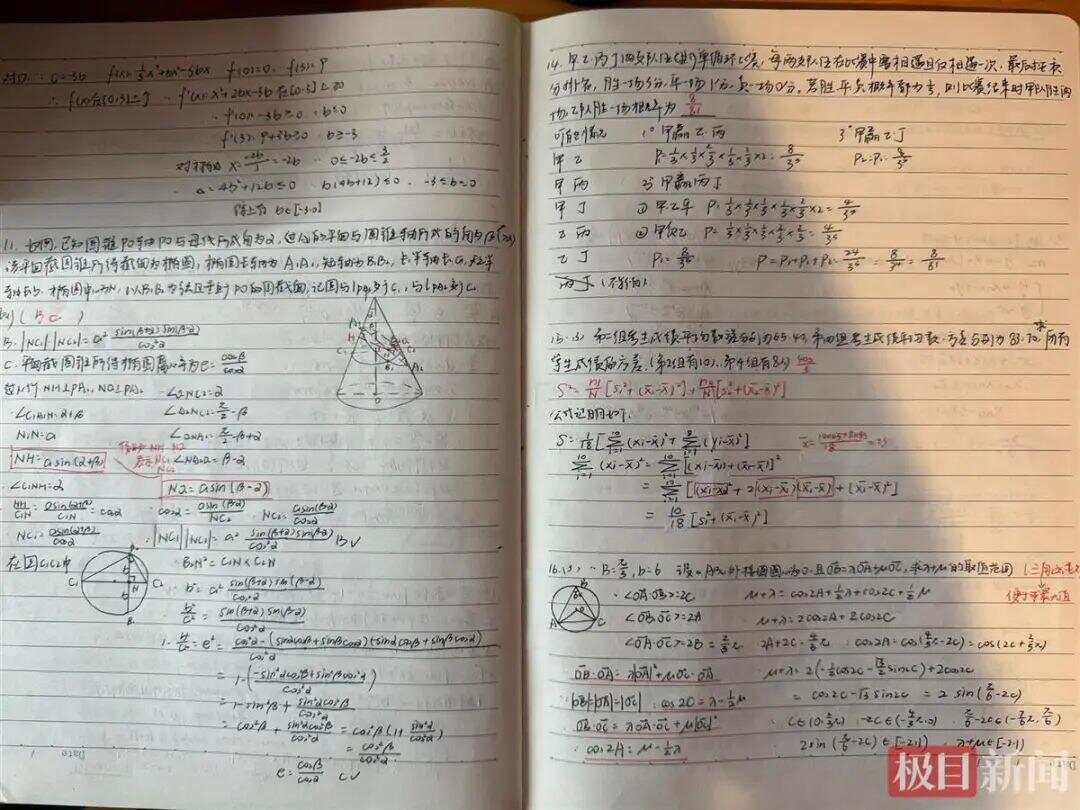 对 ∵ c=-3b f(x)=⅓x³+bx²-3bx f(0)=0 f(3)=9
∴ f(x)在[0,3] f'(x)=x²+2bx-3b在[0,3]≥0
f'(0)=-3b≥0 ∴ b≤0
f'(3)=9+3b≥0 b≥-3
对称轴 x= =-2b 0≤-2b≤3/2
4b²+12b≤0 b(4b+12)≤0 -3≤b≤0
综上有 b∈[-3,0]
11. 如图,已知圆锥PO的轴PO与母线所成角为α,过A₁的平面与圆锥的轴所成的角为β(β>α)
该平面截圆锥所得截面为椭圆,椭圆长轴为A₁A₂,短轴为B₁B₂,长半轴长a,短半
轴长b,椭圆中心为N,以B₁B₂为 且垂直于PO的圆截面,记圆与 交于C₁,与 交于C₂
则( B C )
B. |NC₁||NC₂|=a² sin(β+α)sin(β-α)/cos²α
C. 平面截圆锥所得椭圆离心率为e=cosβ/cosα
过N作NH⊥PA₁, NQ⊥PA₂ ∠QNC₂=α
∠C₁A₁N=α+β ∠A₂NC₂=π/2-β
N₁N=a ∠QNA₂=π/2-β+α
NH=asin(α+β) ∠NA₂Q=β-α
∠C₁NH=α NQ=asin(β-α)
NH/C₁N=asin(α+β)/C₁N=cosα cosα=asin(β-α)/NC₂ NC₂=asin(β-α)/cosα
NC₁=asin(α+β)/cosα ∴|NC₁||NC₂|=a² sin(β+α)sin(β-α)/cos²α B✓
在圆C₁C₂中 B₂N²=C₁N×C₂N
b²=a² sin(β+α)sin(β-α)/cos²α
b²/a²=sin(β+α)sin(β-α)/cos²α
1-b²/a²=e²=cos²α-(sinαcosβ+sinβcosα)(-sinαcosβ+sinβcosα)/cos²α
=1-(-sin²αcos²β+sin²βcos²α)/cos²α
=1-sin²β+sin²αcos²β/cos²α
=cos²β+sin²αcos²β/cos²α=cos²β(1+sin²α/cos²α)
=cos²β/cos²α
e=cosβ/cosα C✓
14. 甲乙丙丁四支队伍进行单循环比赛,每两支队伍在比赛中需相遇且仅相遇一次,最后按积
分排名,胜一场3分,平一场1分,负一场0分,若胜平负概率都为⅓,则比赛结束时甲队胜两
场,乙队胜一场概率为 8/81
可能情况 1° 甲赢乙、丙 3° 甲赢乙丁
甲 乙 P₁=⅓×⅓×⅔×⅓×⅔×2=8/3⁵ P₂=P₁=8/3⁵
甲 丙 2° 甲赢丙丁
甲 丁 ① 甲乙平 P=⅓×⅓×⅓×⅓×⅔×2=4/3⁵
乙 丙 ② 甲负乙 P=⅓×⅓×⅓×⅔×⅔=4/3⁵
乙 丁 P₃=8/3⁵ P=P₁+P₂+P₃=24/3⁵=8/3⁴=8/81
丙丁(不影响)
15. (3) 第二组考生成绩平均数、方差分别为65、43,第四组考生成绩平均数、方差分别为83、70,求所有
考生成绩的方差。(第2组有10人,第4组有8人)
S²= [S₁²+(x̄₁-x̄)²]+ [S₂²+(x̄₂-x̄)²]
公式证明如下:
S²=1/18[Σ(xi-x̄)²+Σ(yi-x̄)²] x̄= =73
Σ(xi-x̄)²=Σ[(xi-x̄₁)+(x̄₁-x̄)]²
=Σ[(xi-x̄₁)²+2(xi-x̄₁)(x̄₁-x̄)+(x̄₁-x̄)²]
=10/18[S₁²+(x̄₁-x̄)²]
16. ∵B=π/3, b=6 设△ABC外接圆圆心为O,且OB=λOA+μOC,求λ+μ的取值范围
∴∠OA·OB>=2C μ+λ=cos2A+½λ+cos2C+½μ
∠OB·OC>=2A μ+λ=2cos2A+2cos2C
∠OA·OC>=2B=⅔π 2A+2C=4/3π cos2A=cos(4/3π-2C)=cos(2C+2/3π)
OB·OA=λOA²+μOC·OA μ+λ=2(-½cos2C-√3/2sin2C)+2cos2C
∴|OB|=|OA|=|OC| cos2C=λ-½μ =cos2C-√3sin2C=2sin(π/6-2C)
OB·OC=λOA·OC+μ|OC|² C∈(0,2/3π) -2C∈(-4/3π,0) π/6-2C∈(-7/6π,π/6)
∴cos2A=μ-½λ 2sin(π/6-2C)∈[-2,1) λ+μ∈[-2,1)
极目新闻